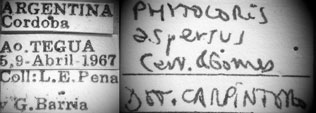 ARGENTINA
Cordoba
Ao. TEGUA
5,9-Abril-1967
Coll: L.E. Pena
G. Barria
PHYTOCORIS
aspersus
Carv. &Gomes
Det. CARPINTERO